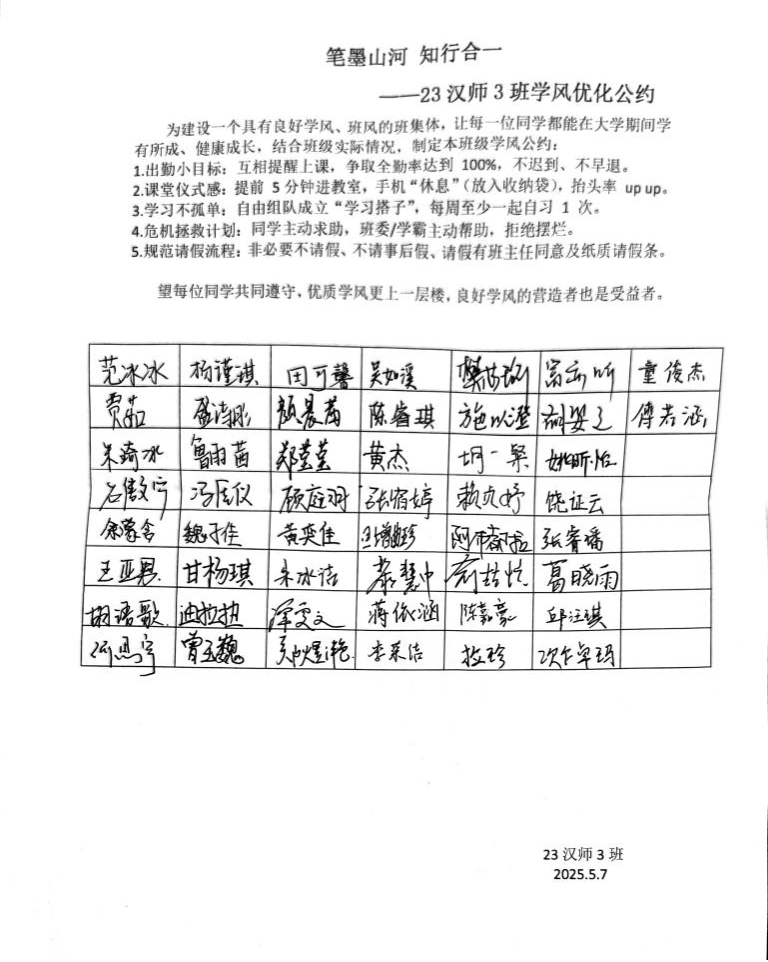 笔墨山河 知行合一
——23 汉师 3 班学风优化公约
为建设一个具有良好学风、班风的班集体，让每一位同学都能在大学期间学
有所成、健康成长，结合班级实际情况，制定本班级学风公约：
1.出勤小目标：互相提醒上课，争取全勤率达到 100%，不迟到、不早退。
2.课堂仪式感：提前 5 分钟进教室，手机“休息”（放入收纳袋），抬头率 up up。
3.学习不孤单：自由组队成立“学习搭子”，每周至少一起自习 1 次。
4.危机拯救计划：同学主动求助，班委/学霸主动帮助，拒绝摆烂。
5.规范请假流程：非必要不请假、不请事后假、请假有班主任同意及纸质请假条。
望每位同学共同遵守，优质学风更上一层楼，良好学风的营造者也是受益者。
范冰冰 杨谨琪 田可馨 吴如溪 童俊杰
贾茹 颜晨茜 陈睿琪 施以澄 傅若涵
朱琦冰 鲁雨茜 郑莹莹 黄杰 胡一
石傲宁 冯居仪 顾庭羽 张宿婷 赖贞妤 饶证云
余蒙含 魏子佳 黄奕佳 张睿璠
王亚男 甘杨琪 朱冰洁 葛晓雨
胡语歌 迪拉热 泽雯文 蒋依涵 陈嘉豪 邱江琪
曾玉魏 李采洁 拉珍 次仁卓玛
23 汉师 3 班
2025.5.7